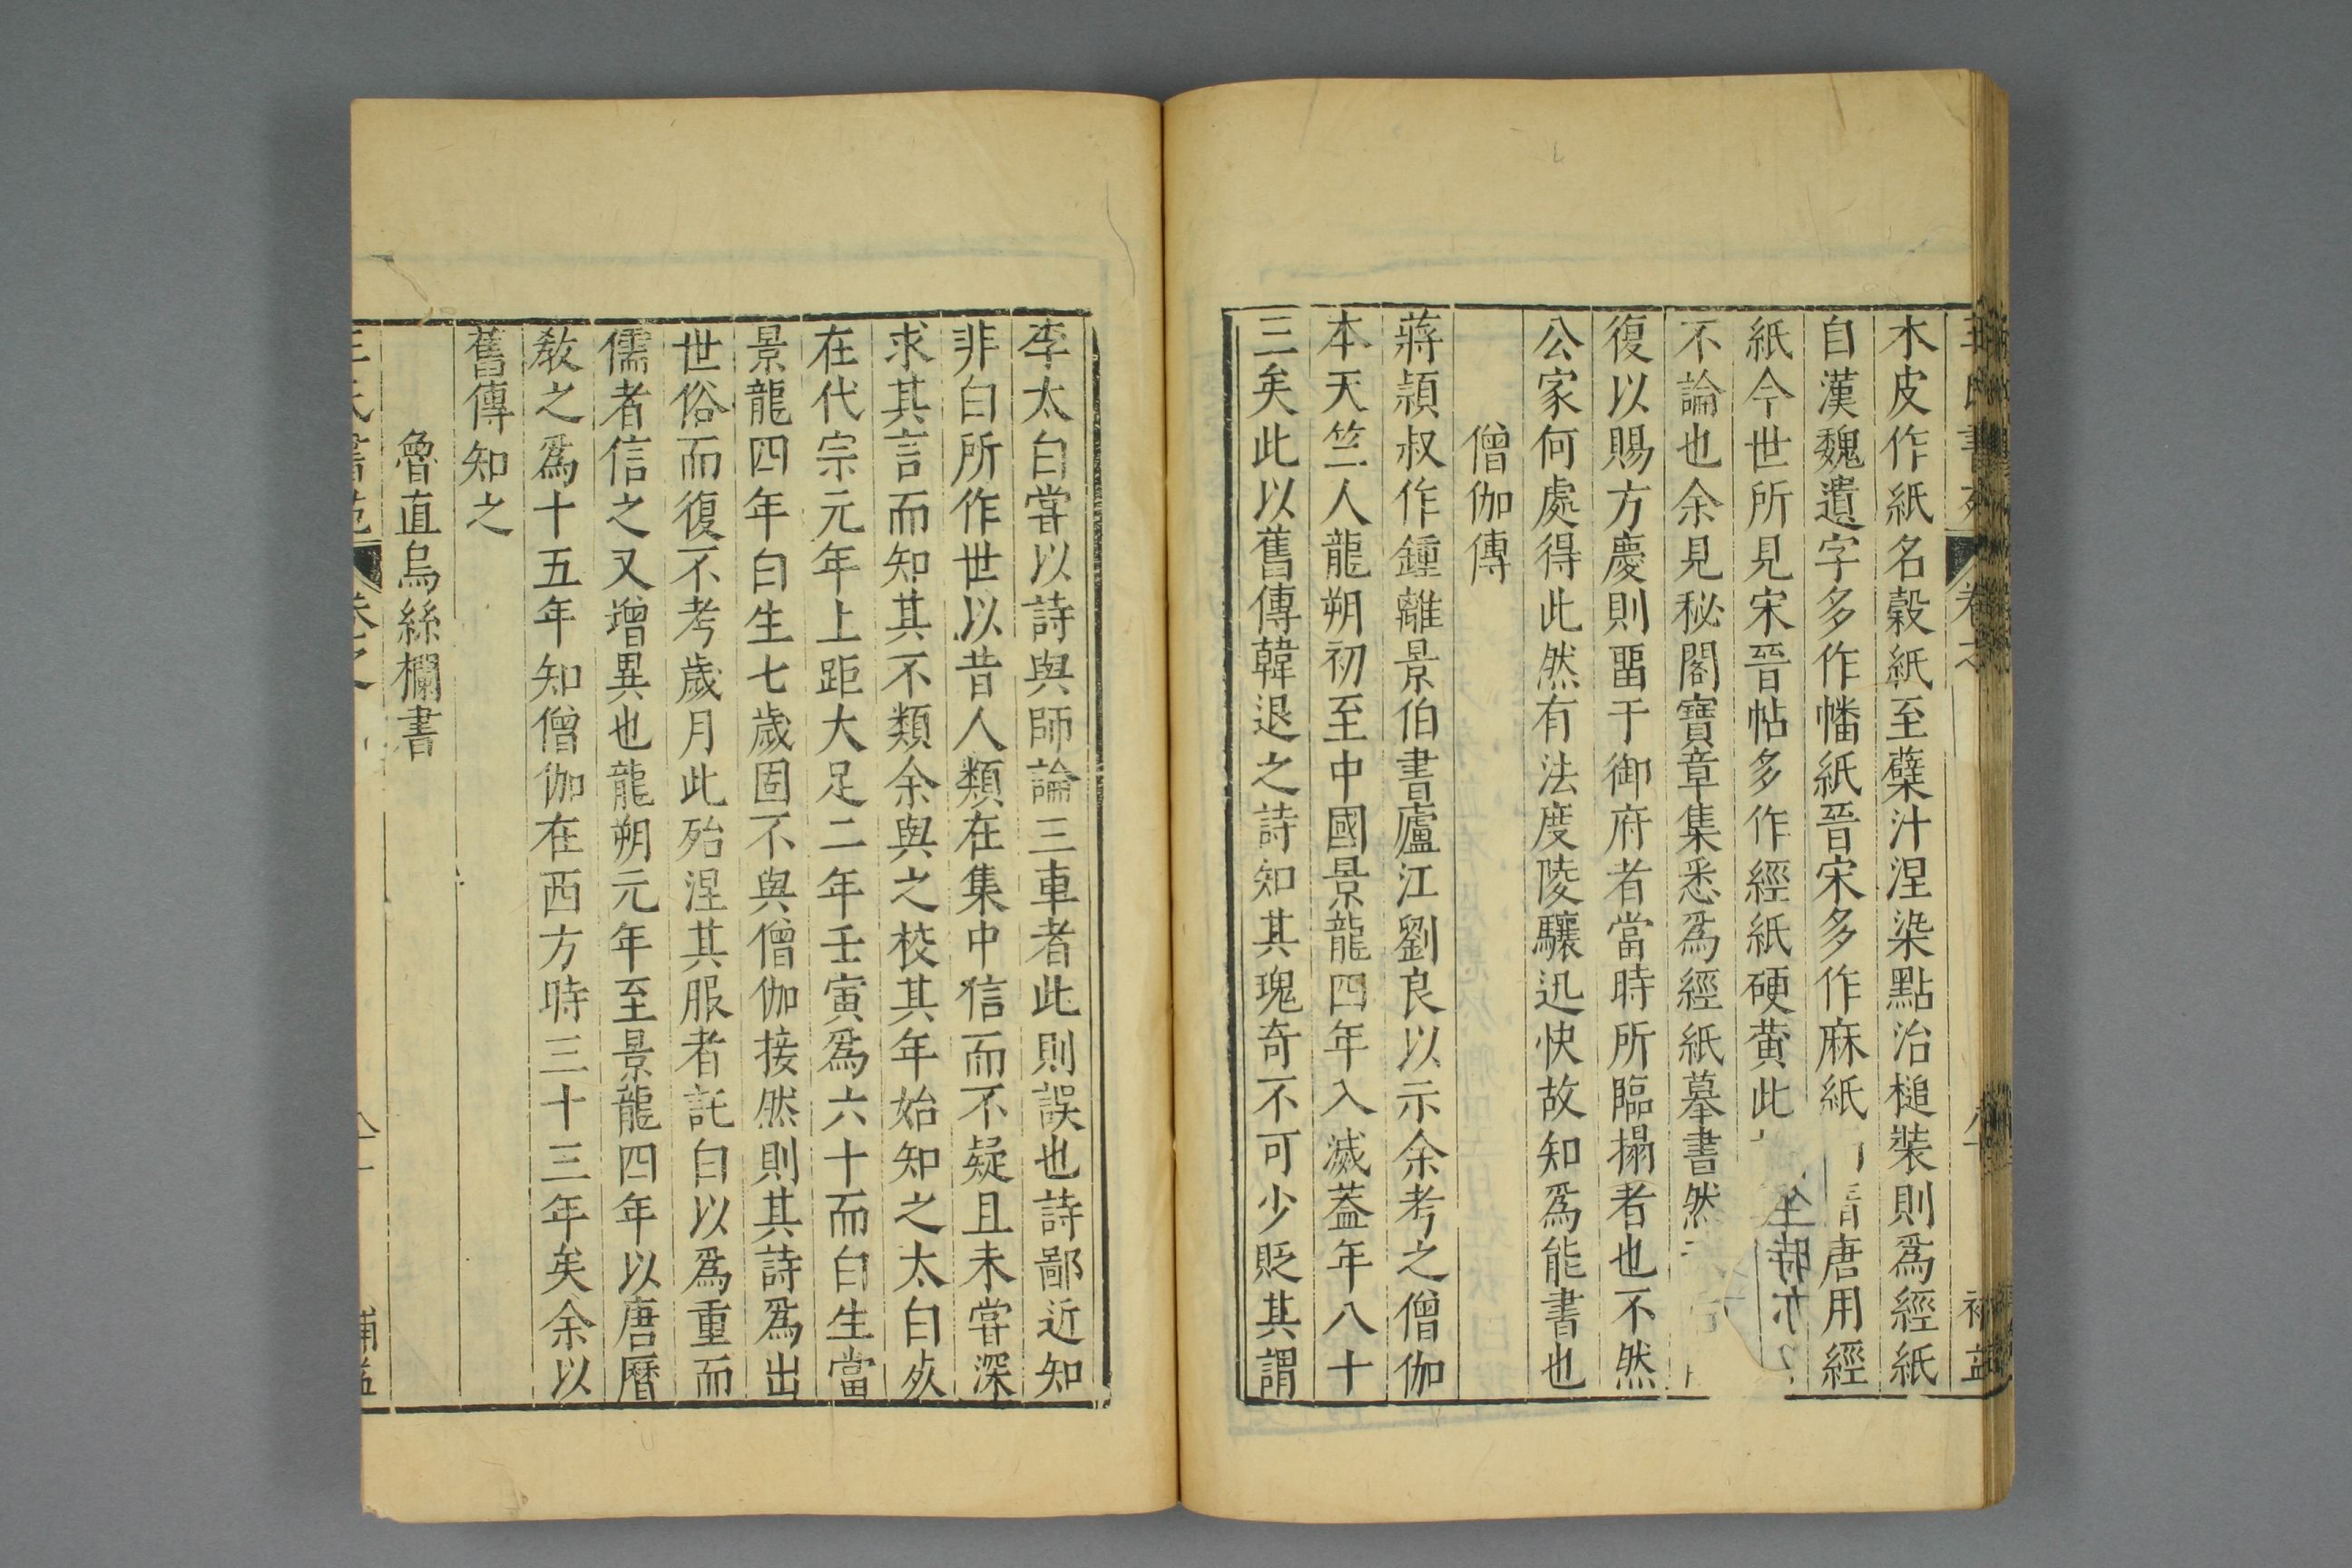 王氏書苑 卷之 補益
木皮作紙名榖紙至蘗汁涅染點治槌裝則爲經紙
自漢魏遺字多作幡紙晉宋多作麻紙唐用經
紙今世所見宋晉帖多作經紙硬黄此
不論也余見秘閣寶章集悉爲經紙摹書然
復以賜方慶則畱于御府者當時所臨搨者也不然
公家何處得此然有法度陵驤迅快故知爲能書也
僧伽傳
蔣頴叔作鍾離景伯書廬江劉良以示余考之僧伽
本天竺人龍朔初至中國景龍四年入滅葢年八十
三矣此以舊傳韓退之詩知其瑰奇不可少貶其謂
李太白嘗以詩與師論三車者此則誤也詩鄙近知
非白所作世以昔人類在集中信而不疑且未嘗深
求其言而知其不類余與之校其年始知之太白歿
在代宗元年上距大足二年壬寅爲六十而白生當
景龍四年白生七歲固不與僧伽接然則其詩爲出
世俗而復不考歲月此殆涅其服者託白以爲重而
儒者信之又增異也龍朔元年至景龍四年以唐曆
敎之爲十五年知僧伽在西方時三十三年矣余以
舊傳知之
魯直烏絲欄書
王氏書苑 卷之 補益